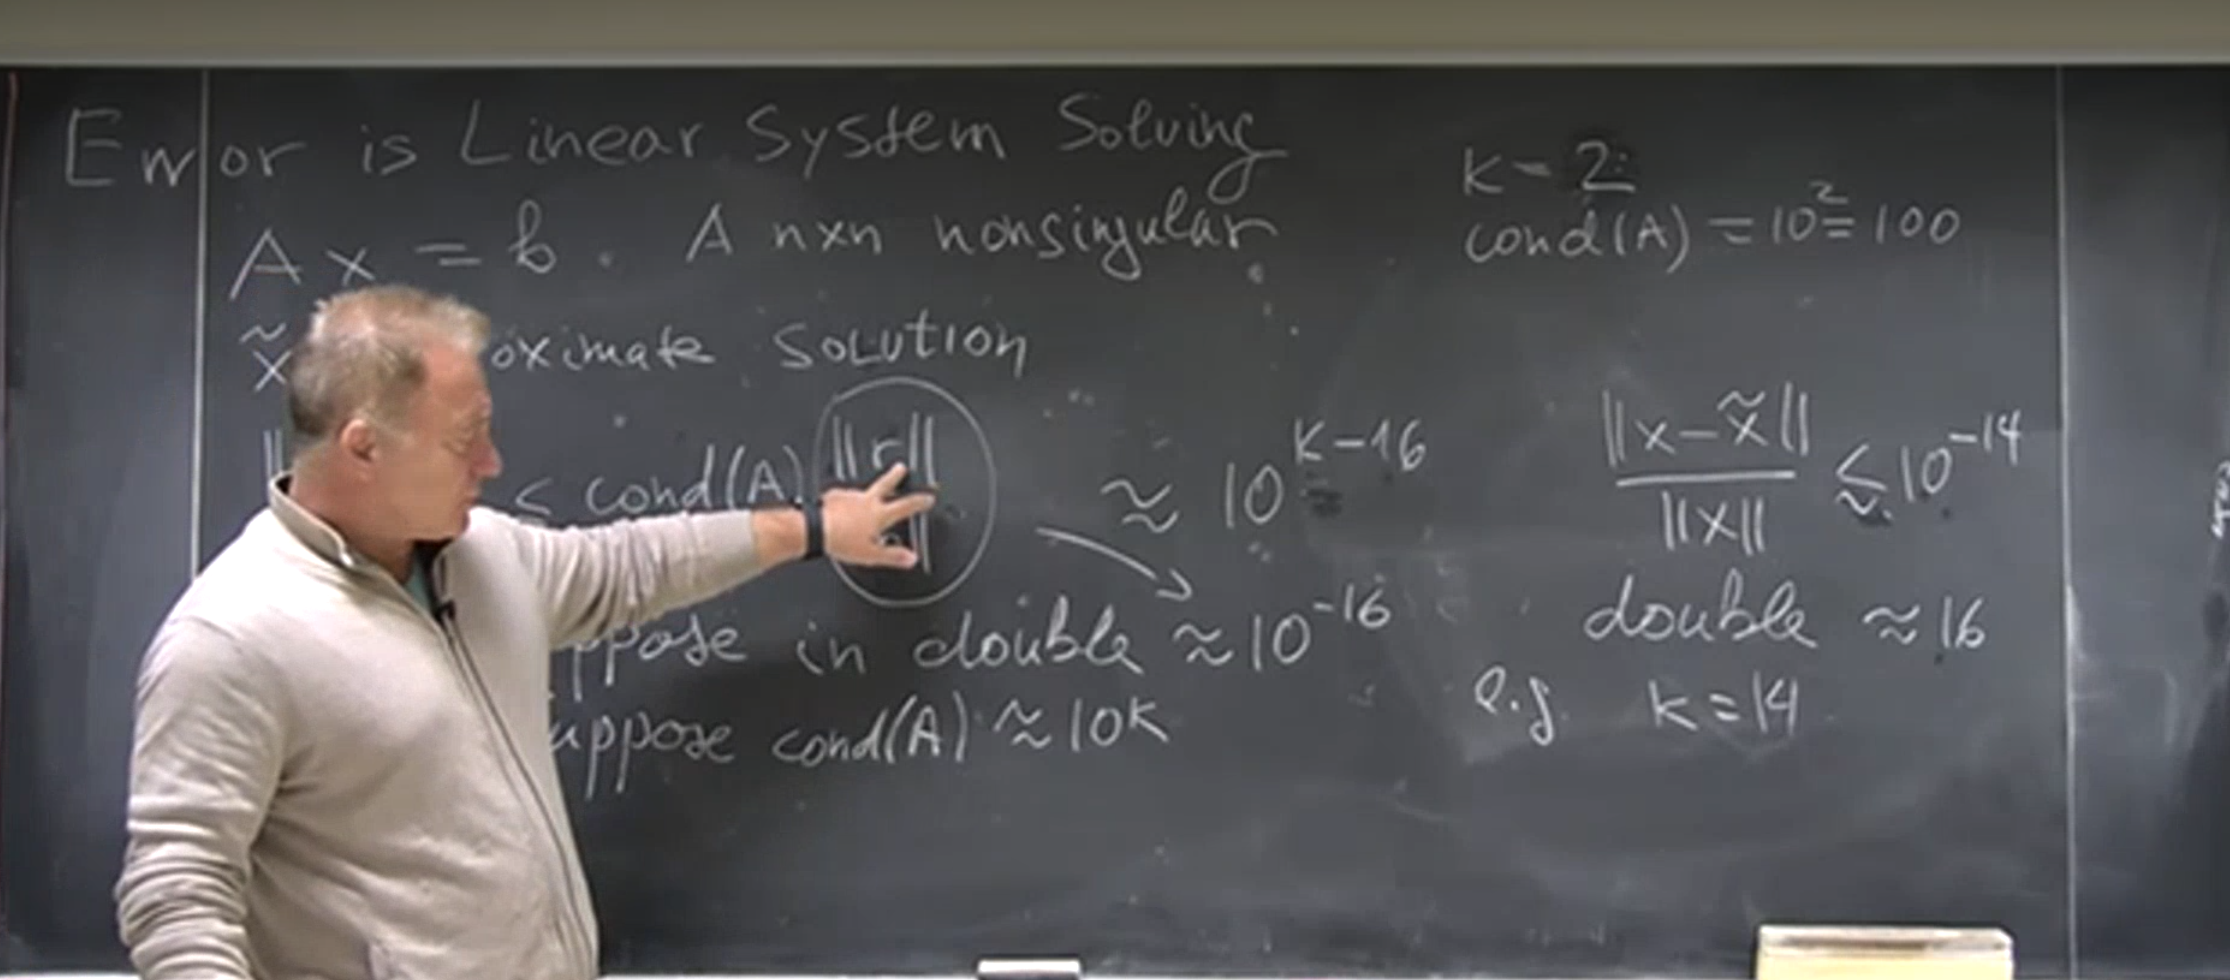 Error is Linear System Solving
Ax = b. A nxn nonsingular
x̃ oximate solution
|| ≤ cond(A) ||r|| || ≈ 10^{K-16}
ppose in double ≈ 10^{-16}
uppose cond(A) ≈ 10^K
K = 2:
cond(A) = 10^2 = 100
||x-x̃|| / ||x|| ≲ 10^{-14}
double ≈ 16
e.g. k = 14